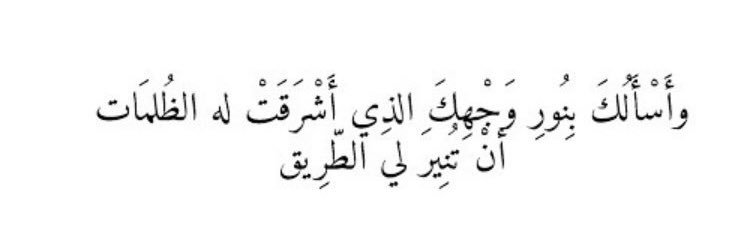 وأَسْأَلُكَ بِنُورِ وَجْهِكَ الذِي أَشْرَقَتْ له الظُلمَات
أنْ تُنِيرَ لي الطّرِيق